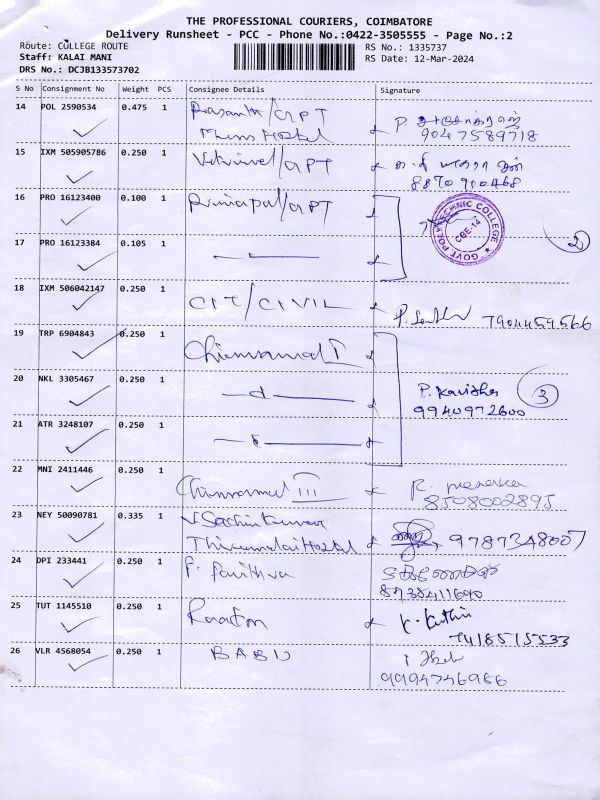 THE PROFESSIONAL COURIERS, COIMBATORE
Delivery Runsheet - PCC - Phone No.:0422-3505555 - Page No.:2
Route: COLLEGE ROUTE RS No.: 1335737
Staff: KALAI MANI RS Date: 12-Mar-2024
DRS No.: DCJB133573702
S No Consignment No Weight PCS Consignee Details Signature
14 POL 2590534 0.475 1 Prasanth/GPT P.
Mens Hostel 9047589718
15 IXM 505905786 0.250 1 /GPT
8870900468
16 PRO 16123400 0.100 1 Principal/GPT
GOVT. POLYTECHNIC COLLEGE CBE-14
17 PRO 16123384 0.105 1 2
18 IXM 506042147 0.250 1 CIT/CIVIL P.
7904459566
19 TRP 6904843 0.250 1 I
20 NKL 3305467 0.250 1 P. Kavitha 3
9940972600
21 ATR 3248107 0.250 1
22 MNI 2411446 0.250 1 III R.
8508002895
23 NEY 50090781 0.335 1 V Sachin Kumar
Thirumalai Hostel 9787348007
24 DPI 233441 0.250 1 P. Pavithra
25 TUT 1145510 0.250 1 K.
7418515533
26 VLR 4568054 0.250 1 BABU
9994746986